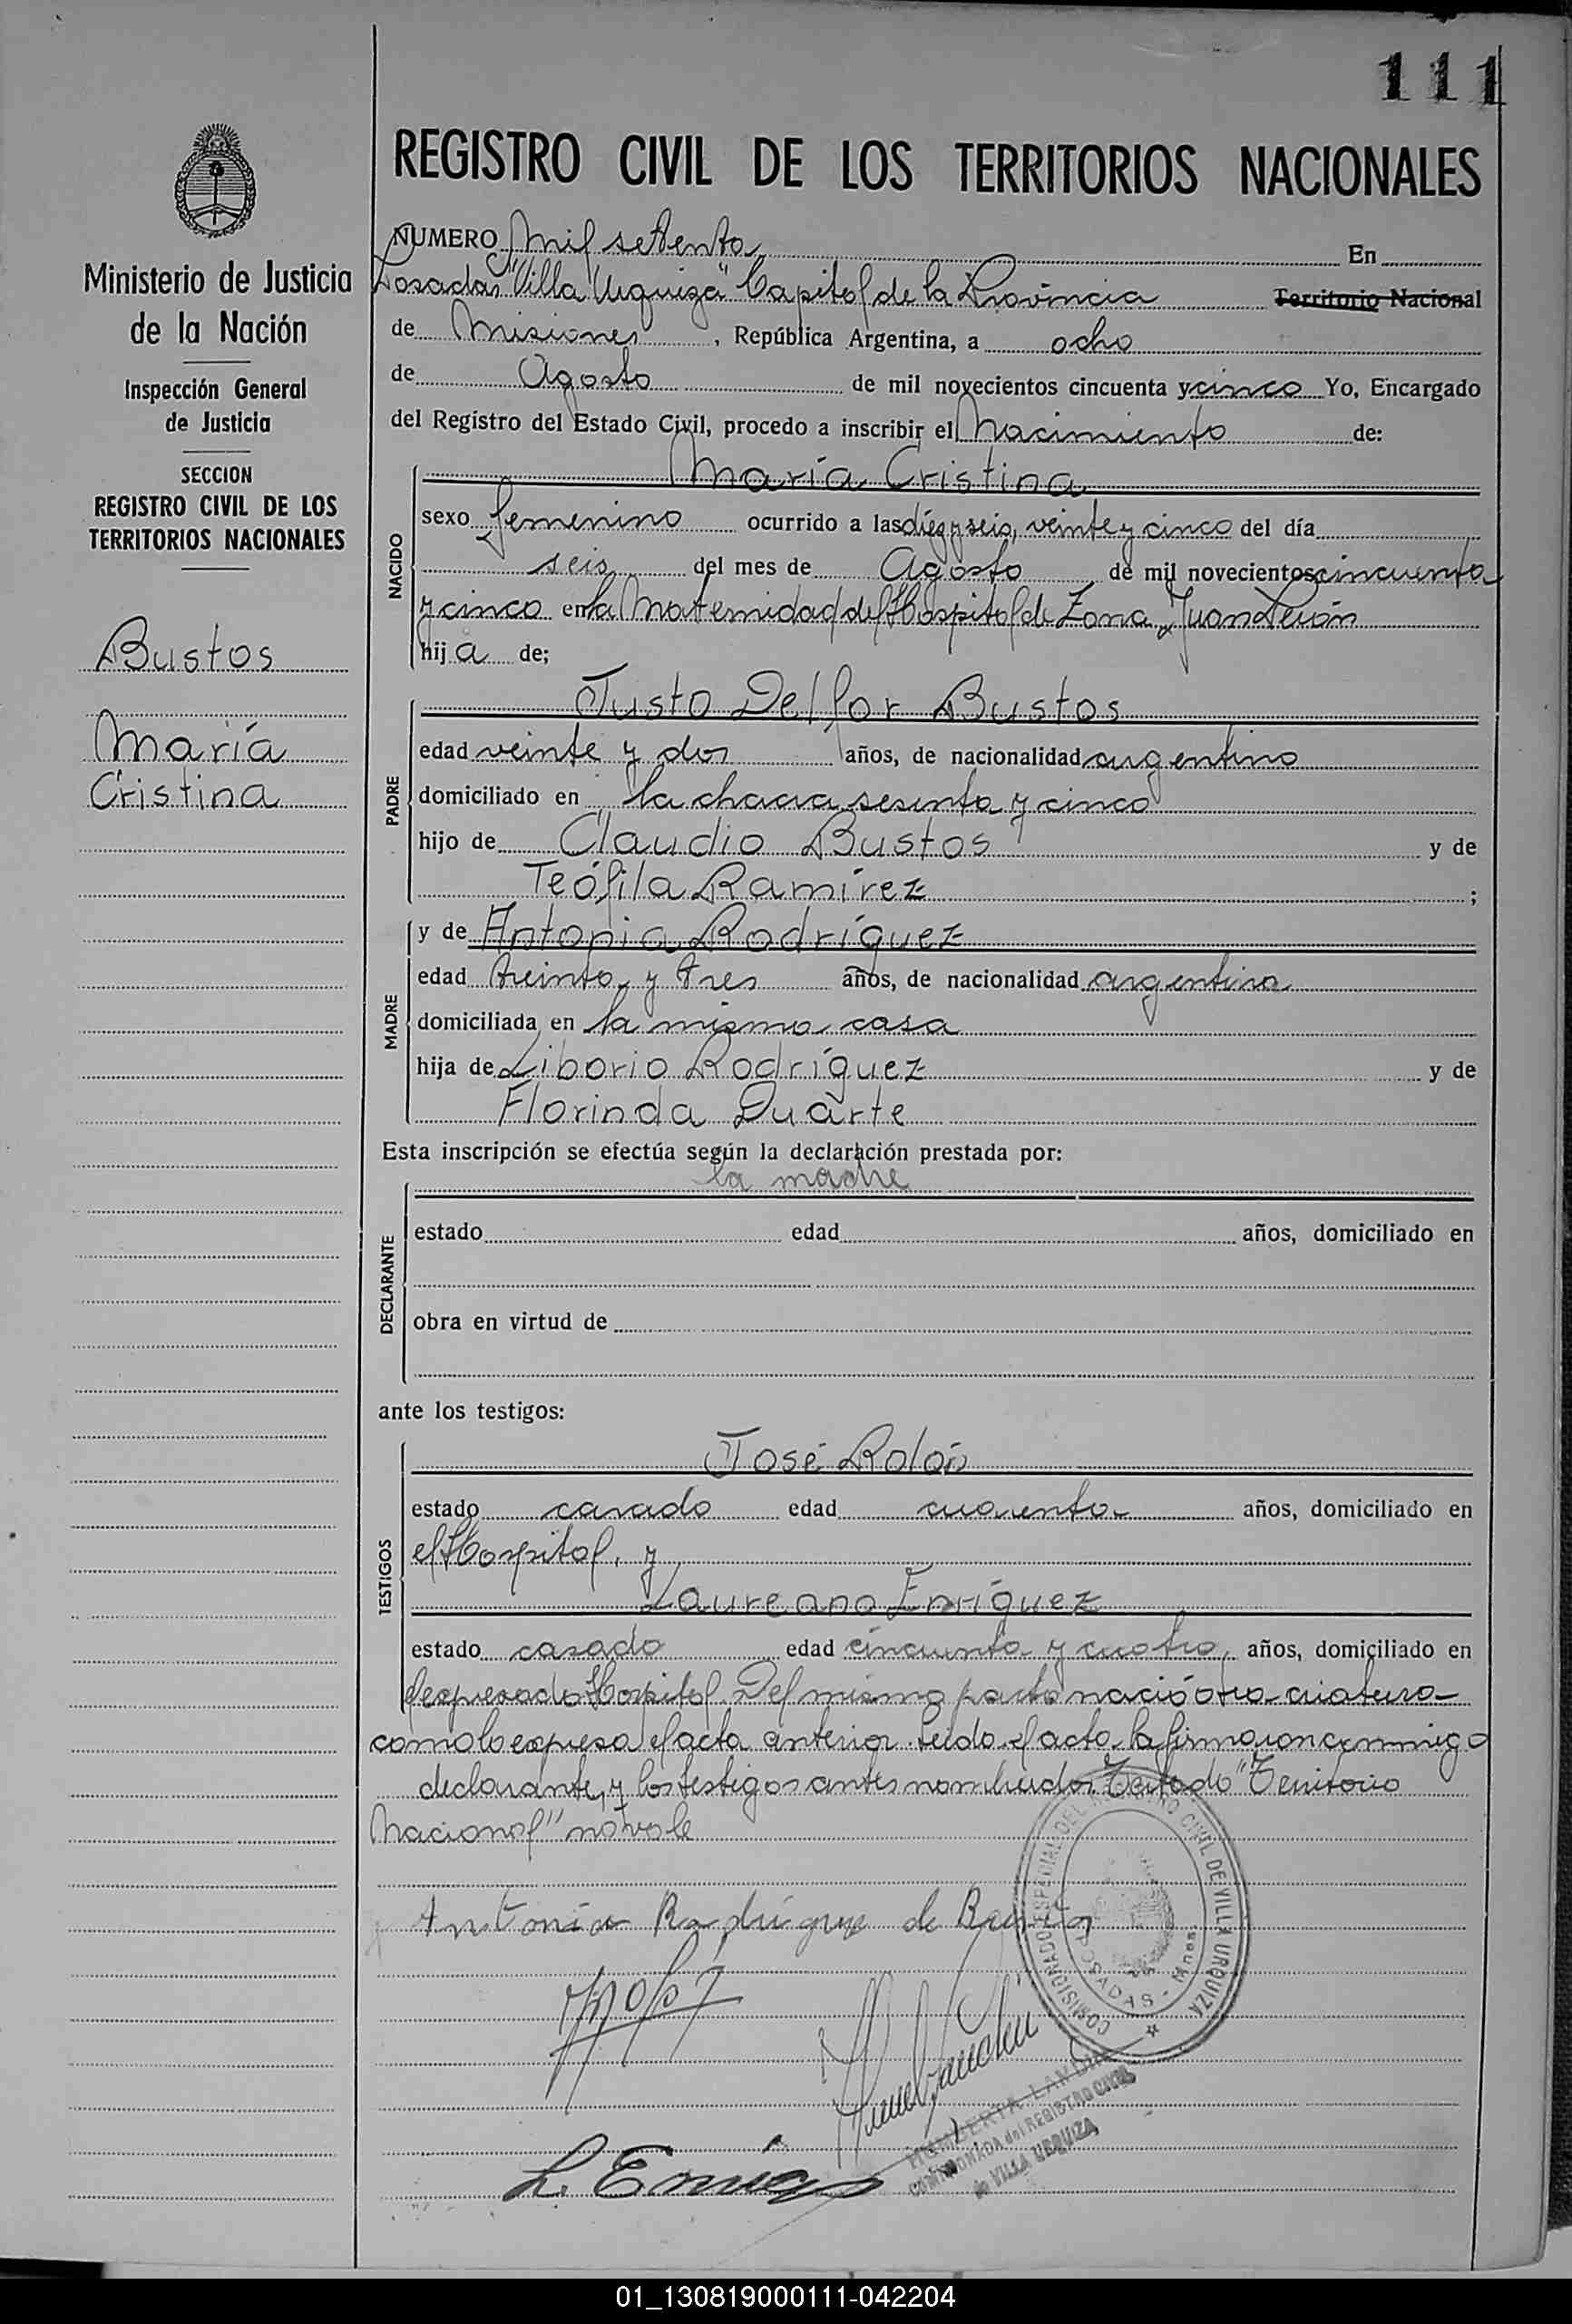 111
REGISTRO CIVIL DE LOS TERRITORIOS NACIONALES
Ministerio de Justicia
de la Nación
Inspección General
de Justicia
SECCION
REGISTRO CIVIL DE LOS
TERRITORIOS NACIONALES
Bustos
María
Cristina
NUMERO mil setenta En
Posadas "Villa Urquiza" Capital de la Provincia Territorio Nacional
de Misiones, República Argentina, a ocho
de Agosto de mil novecientos cincuenta y cinco Yo, Encargado
del Registro del Estado Civil, procedo a inscribir el Nacimiento de:
NACIDO
María Cristina
sexo femenino ocurrido a las diez y seis, veinte y cinco del día
seis del mes de Agosto de mil novecientos cincuenta
y cinco en la Maternidad del Hospital de Zona, Juan Perón
hija de;
PADRE
Justo Delfor Bustos
edad veinte y dos años, de nacionalidad argentino
domiciliado en la chacra sesenta y cinco
hijo de Claudio Bustos y de
Teófila Ramírez ;
MADRE
y de Antonia Rodríguez
edad treinta y tres años, de nacionalidad argentina
domiciliada en la misma casa
hija de Liborio Rodríguez y de
Florinda Duarte
Esta inscripción se efectúa según la declaración prestada por:
DECLARANTE
la madre
estado edad años, domiciliado en
obra en virtud de
ante los testigos:
TESTIGOS
José Rolón
estado casado edad cuarenta años, domiciliado en
el Hospital, y
Laureano Enríquez
estado casado edad cincuenta y cuatro años, domiciliado en
el expresado Hospital. Del mismo parto nació otra criatura
como lo expresa el acta anterior. Leído el acta la firmaron conmigo
declarante, y los testigos antes nombrados. Testado "Territorio
Nacional" no vale
Antonia Rodríguez de Bustos
COMISIONADO ESPECIAL DEL REGISTRO CIVIL DE VILLA URQUIZA
POSADAS - Mnes.
L. Enríquez
COMISIONADA del REGISTRO CIVIL
de VILLA URQUIZA
01_130819000111-042204